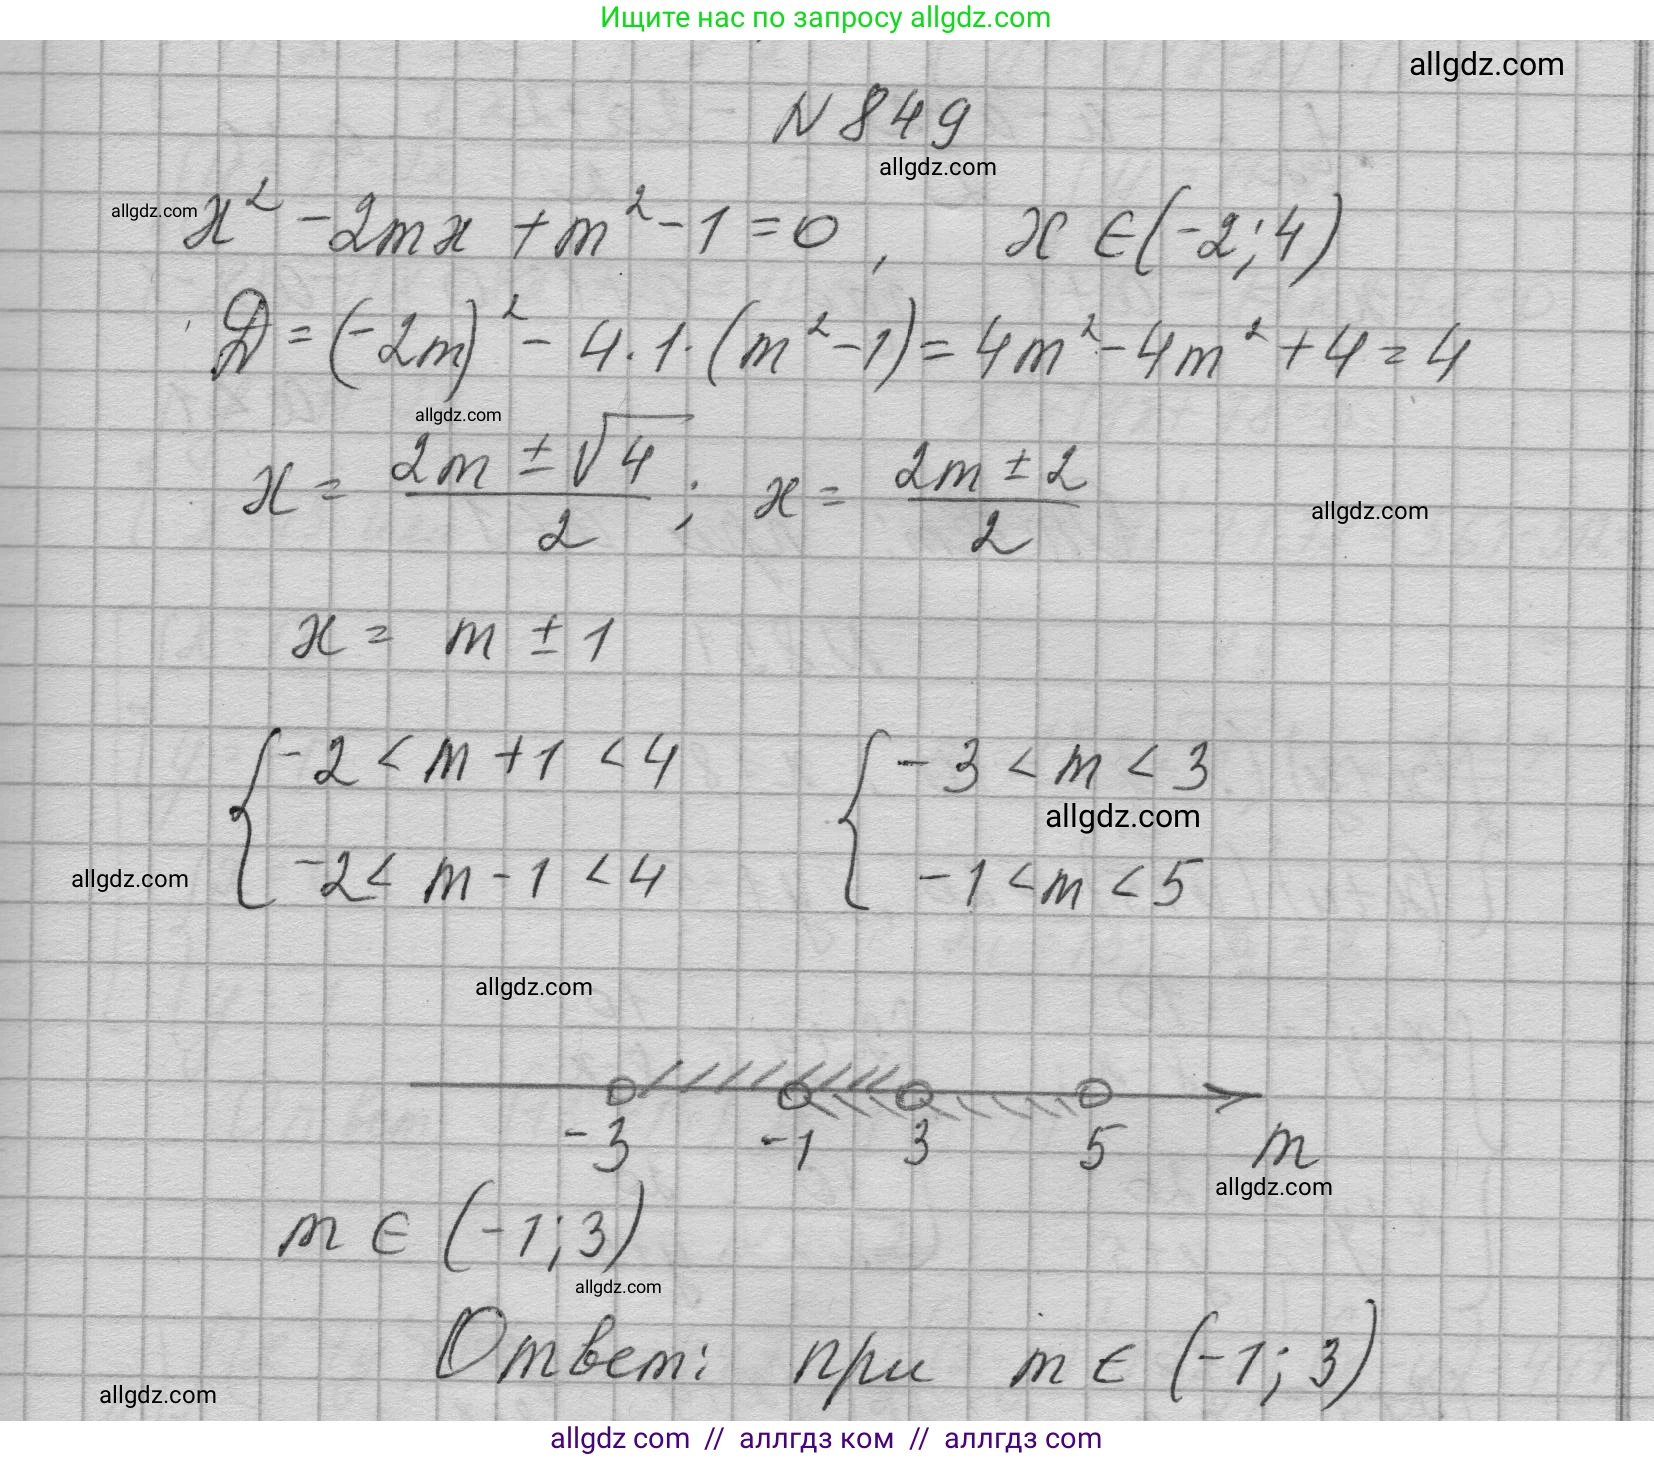 Ищите нас по запросу allgdz.com
allgdz.com
N 849
allgdz.com
allgdz.com
x² - 2mx + m² - 1 = 0, x ∈ (-2; 4)
D = (-2m)² - 4·1·(m² - 1) = 4m² - 4m² + 4 = 4
allgdz.com
x = (2m ± √4)/2; x = (2m ± 2)/2
allgdz.com
x = m ± 1
{ -2 < m + 1 < 4 { -3 < m < 3
allgdz.com
allgdz.com
-2 < m - 1 < 4 -1 < m < 5
allgdz.com
-3 -1 3 5 m
allgdz.com
m ∈ (-1; 3)
allgdz.com
Ответ: при m ∈ (-1; 3)
allgdz.com
allgdz com // аллгдз ком // аллгдз com